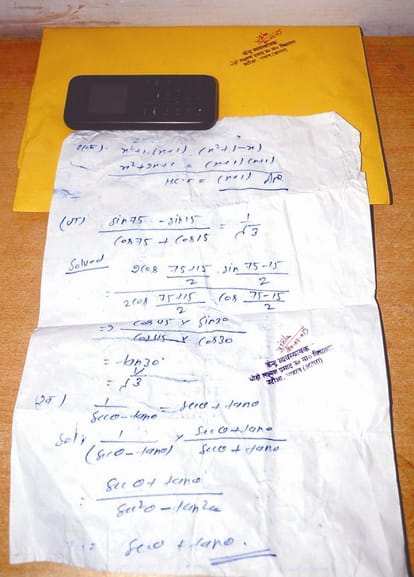 केन्द्र व्यवस्थापक
x²+1 (x+1) (x²+1-x)
x²+2x+1 = (x+1)(x+1)
H.C.F = (x+1) Ans
sin75 - sin15 / cos75 + cos15 = 1/√3
Solved
2cos 75+15/2 . sin 75-15/2
2cos 75+15/2 cos 75-15/2
= cos45 x sin30
cos45 x cos30
= tan30.
= 1/√3
केन्द्र व्यवस्थापक
1/secθ-tanθ = secθ + tanθ
Solv 1/(secθ-tanθ) x secθ+tanθ/secθ+tanθ
= secθ + tanθ
sec²θ - tan²θ
= secθ + tanθ.